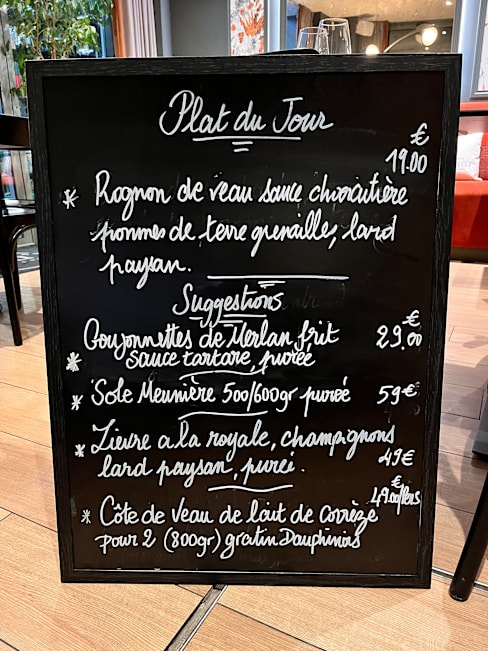 Plat du Jour
€
19.00
* Rognon de veau sauce charcutière
pommes de terre grenaille, lard
paysan.
Suggestions
Goujonnettes de Merlan frit € 29.00
* sauce tartare, purée
* Sole Meunière 500/600gr purée 59€
* Lievre a la royale, champignons
lard paysan, purée. 49€
€
49.00/pers
* Côte de Veau de lait de Corrèze
pour 2 (800gr) gratin Dauphinois